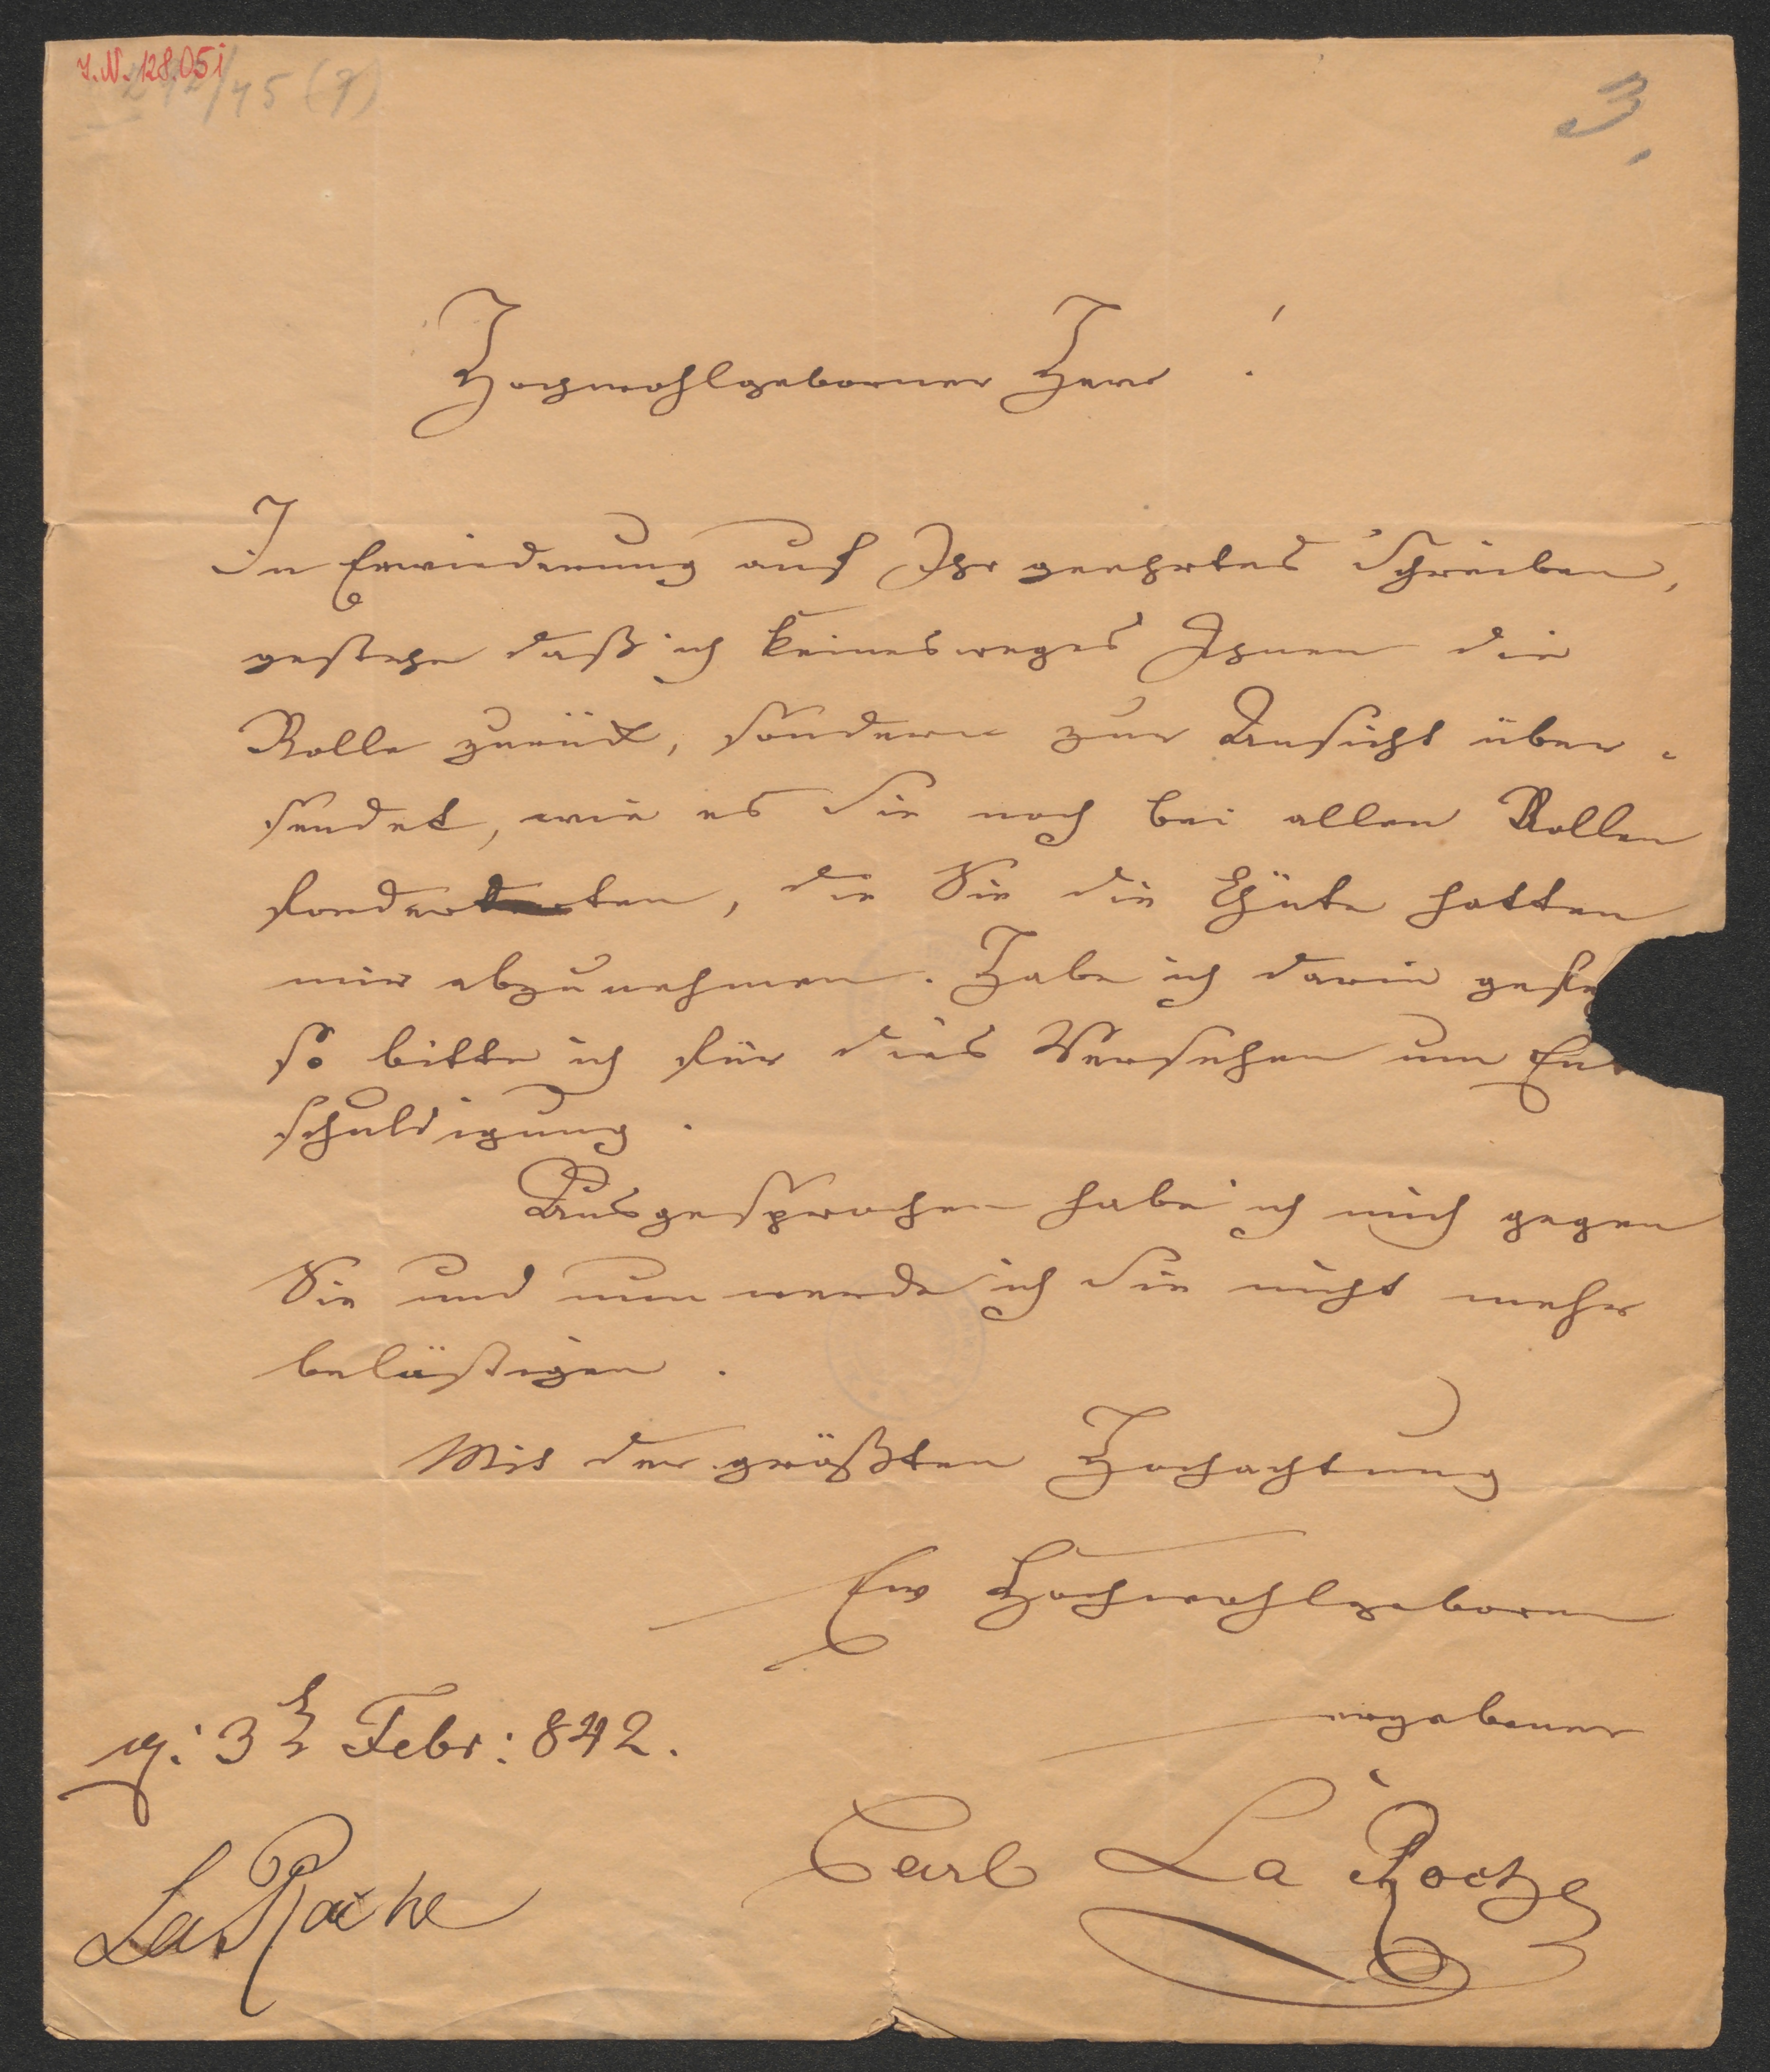 I.N. 128.051
3.
Hochwohlgeborner Herr !
In Erwiederung auf Ihr geehrtes Schreiben,
gestehe daß ich keinesweges Ihnen die
Rolle zurück, sondern zur Ansicht über-
sendet, wie es Sie noch bei allen Rollen
forderten, die Sie die Güte hatten
mir abzunehmen. Habe ich darin gefe
so bitte ich für dies Versehen um Ent
schuldigung.
Ausgesprochen habe ich mich gegen
Sie und nun werde ich Sie nicht mehr
belästigen.
Mit der größten Hochachtung
Ew Hochwohlgeboren
ergebener
3 Febr: 842.
Carl La Roche
La Roche